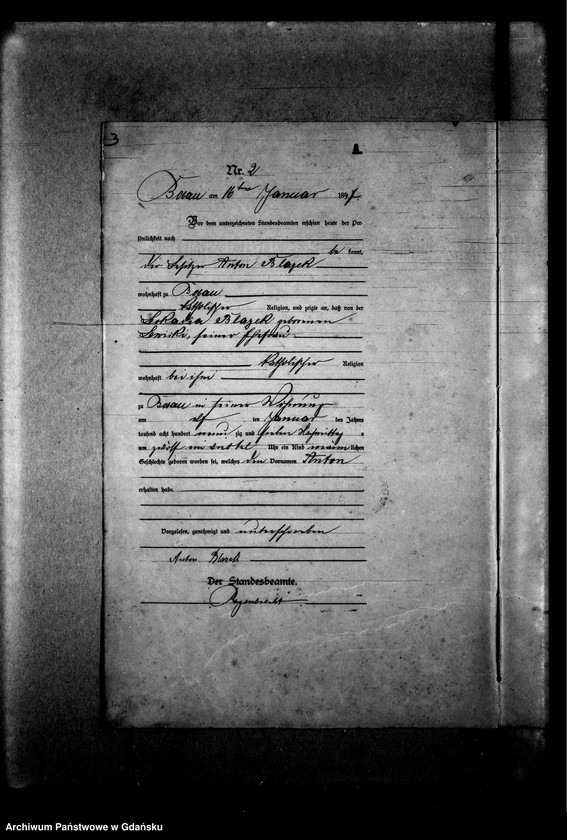 3
A.
Nr. 2
Bosau am 16ten Januar 1897
Vor dem unterzeichneten Standesbeamten erschien heute der Per-
sönlichkeit nach
be kannt,
der Besitzer Anton Blazek
wohnhaft zu Bosau
katholischer Religion, und zeigte an, daß von der
Blazek geborenen
seiner Ehefrau
katholischer Religion
wohnhaft bei ihm
zu Bosau in seiner Wohnung
am elf ten Januar des Jahres
tausend acht hundert neun zig und sieben Nachmittag s
um zwölf ein viertel Uhr ein Kind männlichen
Geschlechts geboren worden sei, welches den Vornamen Anton
erhalten habe.
Vorgelesen, genehmigt und unterschrieben
Anton Blazek
Der Standesbeamte.
Archiwum Państwowe w Gdańsku